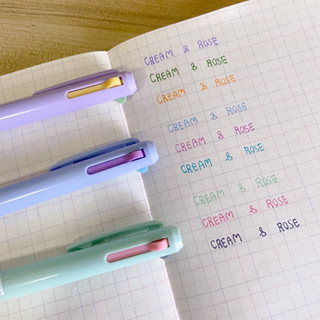 CREAM & ROSE
CREAM & ROSE
CREAM & ROSE
CREAM & ROSE
CREAM & ROSE
CREAM & ROSE
CREAM & ROSE
CREAM & ROSE
CREAM & ROSE